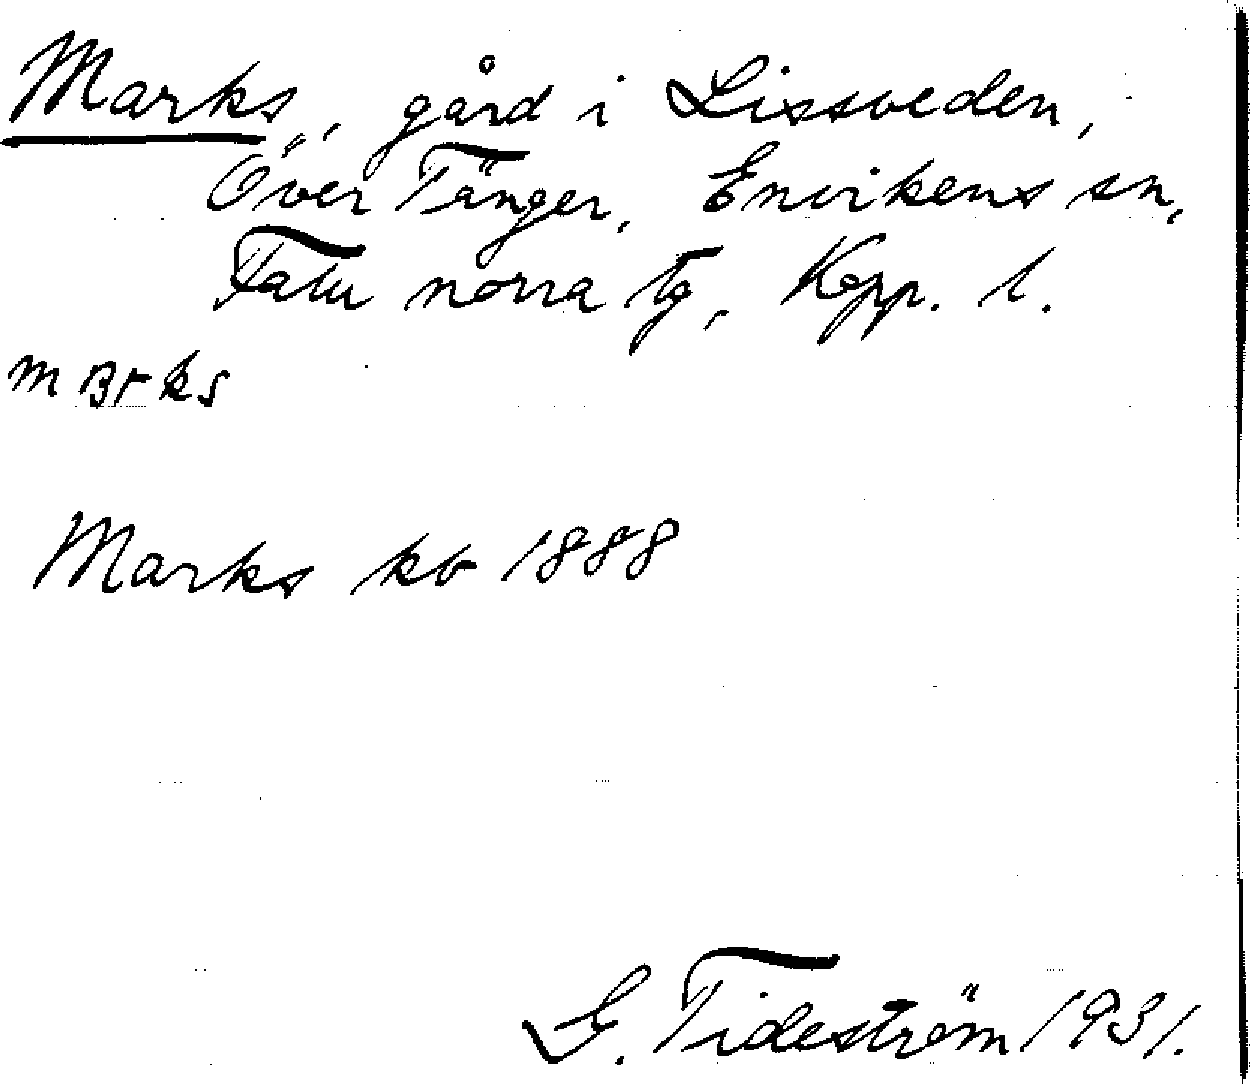 Marks, gård i Lissveden,
Över Tänger, Envikens sn,
Falu norra tg, Kopp. l.
marks
Marks kb 1888
G. Tideström 1931.